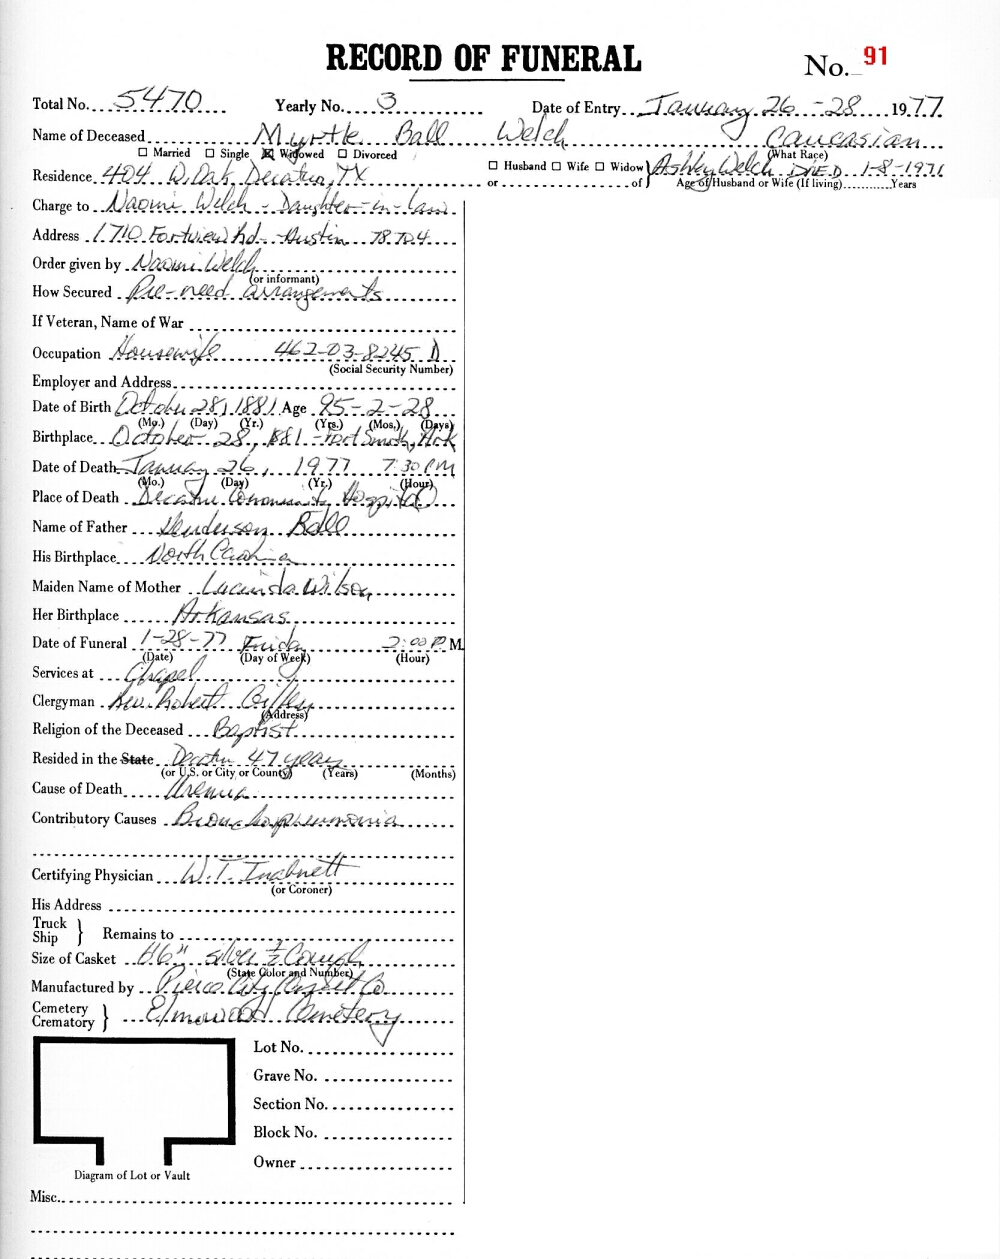 RECORD OF FUNERAL
No. 91
Total No. 5470 Yearly No. 3 Date of Entry January 26 - 28 1977
Name of Deceased Myrtle Ball Welch Caucasian
☐ Married ☐ Single ☒ Widowed ☐ Divorced (What Race)
☐ Husband ☐ Wife ☐ Widow } Ashley Welch DIED 1-8-1971
Residence 404 W. Oak, Decatur, TX or of Age of Husband or Wife (If living) Years
Charge to Naomi Welch - Daughter-in-law
Address 1710 Fortview Rd - Austin 78704
Order given by Naomi Welch
(or informant)
How Secured Pre-need arrangements
If Veteran, Name of War
Occupation Housewife 462-03-8245 D
(Social Security Number)
Employer and Address
Date of Birth October 28, 1881 Age 95-2-28
(Mo.) (Day) (Yr.) (Yrs.) (Mos.) (Days)
Birthplace October 28, 1881 - Fort Smith, Ark
Date of Death January 26, 1977 7:30 PM
(Mo.) (Day) (Yr.) (Hour)
Place of Death Decatur Community Hospital
Name of Father Henderson Ball
His Birthplace North Carolina
Maiden Name of Mother Lucinda Wilson
Her Birthplace Arkansas
Date of Funeral 1-28-77 Friday 2:00 P M.
(Date) (Day of Week) (Hour)
Services at Chapel
Clergyman Rev. Robert
(Address)
Religion of the Deceased Baptist
Resided in the State Decatur 47 years
(or U.S. or City or County) (Years) (Months)
Cause of Death Uremia
Contributory Causes Bronchopneumonia
Certifying Physician W. T. Inabnett
(or Coroner)
His Address
Truck
Ship } Remains to
Size of Casket silver
(State Color and Number)
Manufactured by Pierce City Casket Co
Cemetery
Crematory } Elmwood Cemetery
Lot No.
Grave No.
Section No.
Block No.
Owner
Diagram of Lot or Vault
Misc.